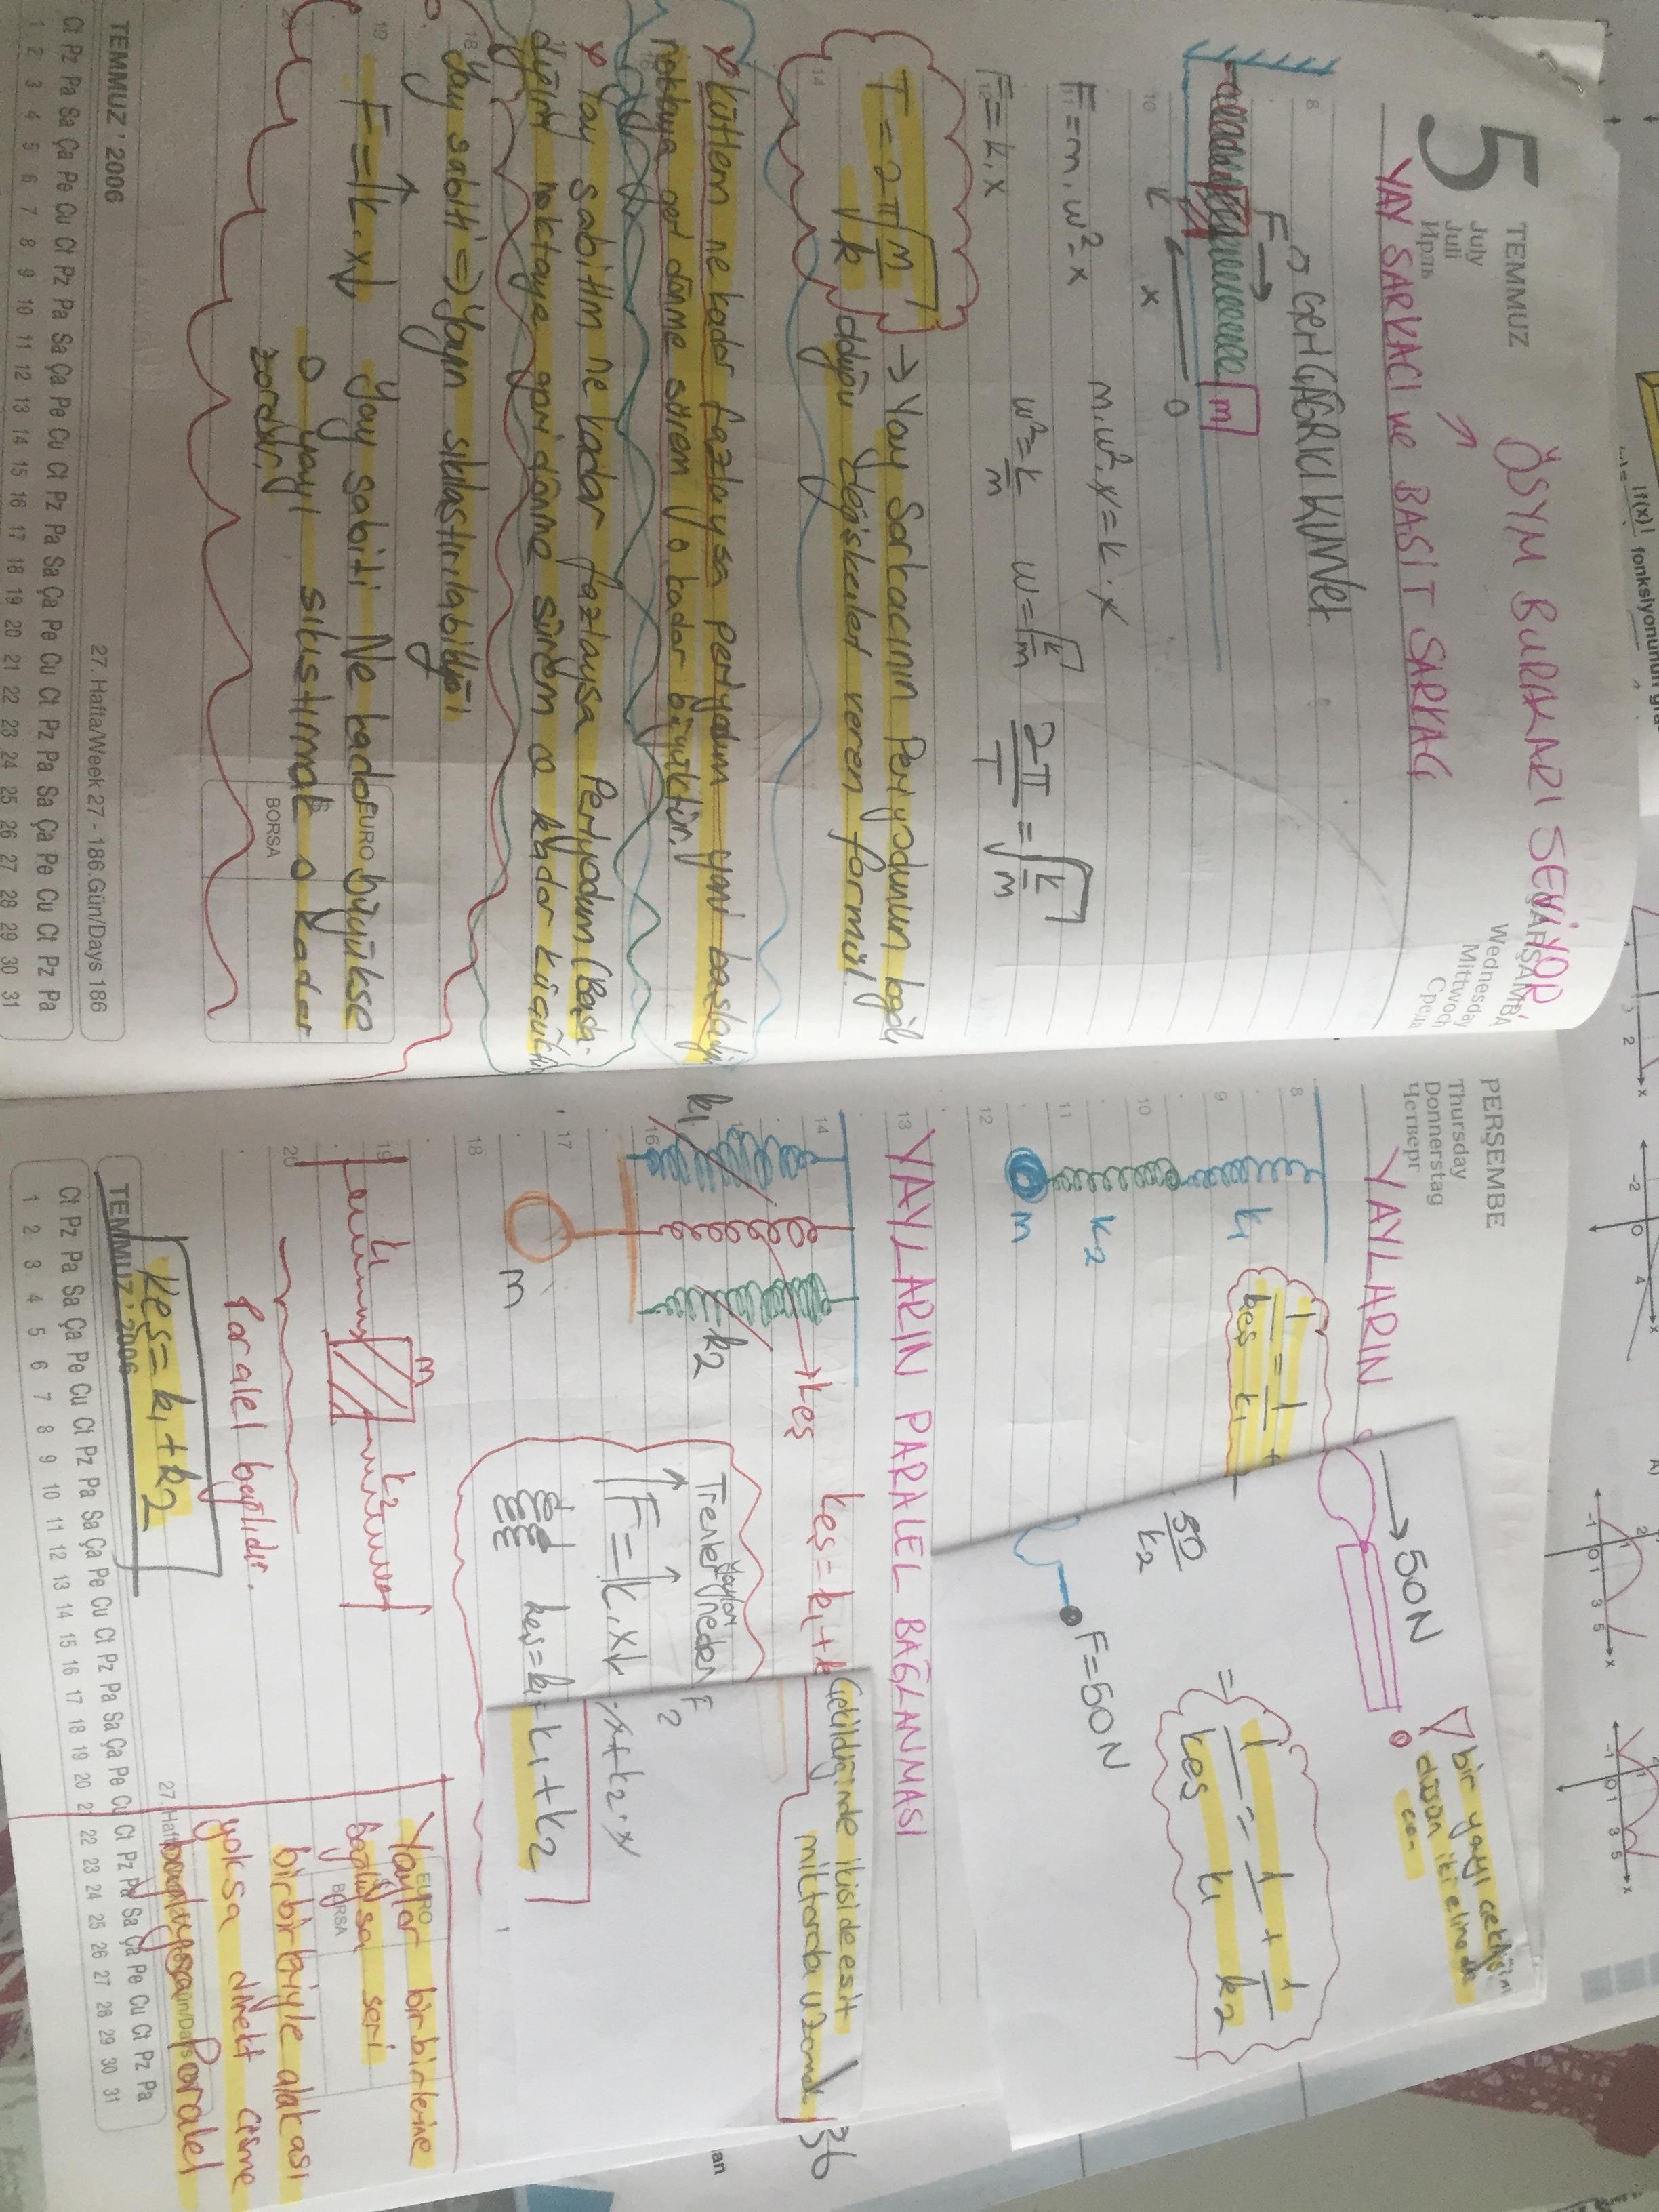 ÖSYM BURAKARI SENİYOR
5
TEMMUZ
July
Juli
ÇARŞAMBA
Wednesday
Mittwoch
Среда
YAY SARKACI ve BASİT SARKAÇ
8
F → GERİ ÇAĞRICI KUVVET
m
10
k
x
0
11
F = m.w².x
m.w².x = k.x
12
F = k.x
w² = k/m
w = √k/m
2π/T = √k/m
14
T = 2π√m/k → Yay Sarkacının Periyodunun bağlı
olduğu değişkenleri veren formül.
Kütlem ne kadar fazlaysa periyodum yani başladığım
noktaya geri dönme sürem o kadar büyüktür.
Yay sabitim ne kadar fazlaysa Periyodum (Başla-
dığım noktaya geri dönme sürem o kadar küçüktür
18
Yay sabiti => Yayın sıkılaştırılabilirliği
19
F = k.x
Yay sabiti Ne kadar büyükse
EURO
o yayı sıkıştırmak o kadar
BORSA
zordur.
20
27. Hafta/Week 27 - 186.Gün/Days 186
TEMMUZ' 2006
Ct Pz Pa Sa Ça Pe Cu Ct Pz Pa Sa Ça Pe Cu Ct Pz Pa Sa Ça Pe Cu Ct Pz Pa Sa Ça Pe Cu Ct Pz Pa
1 2 3 4 5 6 7 8 9 10 11 12 13 14 15 16 17 18 19 20 21 22 23 24 25 26 27 28 29 30 31
PERŞEMBE
Thursday
Donnerstag
Четверг
YAYLARIN
→ 50N
bir yayı çektiğini
düşün iki elinle de
8
9
10
11
12
k1
k2
m
1/keş = 1/k1 +
50/k2
= 1/keş = 1/k1 + 1/k2
F=50N
13
YAYLARIN PARALEL BAĞLANMASI
14
16
17
18
k1
k2
→ keş
m
keş = k1 +
Çekildiğinde ikisi de eşit
miktarda uzamalı
36
Trenle
yaylar
neden
F2
F = k.x
.x + k2.x
keş = k1
= k1 + k2
19
k1
m
k2
20
Paralel bağlıdır.
keş = k1 + k2
EURO
BORSA
Yaylar birbirlerine
bağlıysa seri
birbirleriyle alakası
yoksa direkt cisme
bağlıysa Paralel
TEMMUZ' 2006
Ct Pz Pa Sa Ça Pe Cu Ct Pz Pa Sa Ça Pe Cu Ct Pz Pa Sa Ça Pe Cu Ct Pz Pa Sa Ça Pe Cu Ct Pz Pa
1 2 3 4 5 6 7 8 9 10 11 12 13 14 15 16 17 18 19 20 21 22 23 24 25 26 27 28 29 30 31